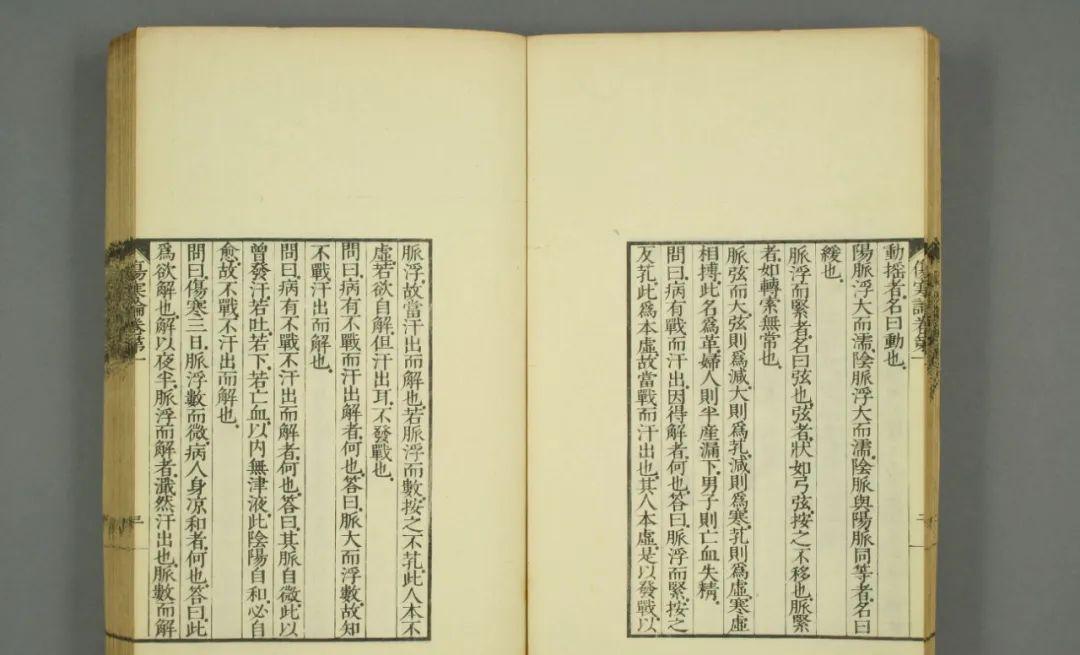 傷寒論卷第一
二
動搖者名曰動也
陽脈浮大而濡陰脈浮大而濡陰脈與陽脈同等者名曰
緩也
脈浮而緊者名曰弦也弦者狀如弓弦按之不移也脈緊
者如轉索無常也
脈弦而大弦則爲減大則爲芤減則爲寒芤則爲虛寒虛
相搏此名爲革婦人則半産漏下男子則亡血失精
問曰病有戰而汗出因得解者何也答曰脈浮而緊按之
反芤此爲本虛故當戰而汗出也其人本虛是以發戰以
脈浮故當汗出而解也若脈浮而數按之不芤此人本不
虛若欲自解但汗出耳不發戰也
問曰病有不戰而汗出解者何也答曰脈大而浮數故知
不戰汗出而解也
問曰病有不戰不汗出而解者何也答曰其脈自微此以
曾發汗若吐若下若亡血以内無津液此陰陽自和必自
愈故不戰不汗出而解也
問曰傷寒三日脈浮數而微病人身凉和者何也答曰此
爲欲解也解以夜半脈浮而解者濈然汗出也脈數而解
傷寒論卷第一
三